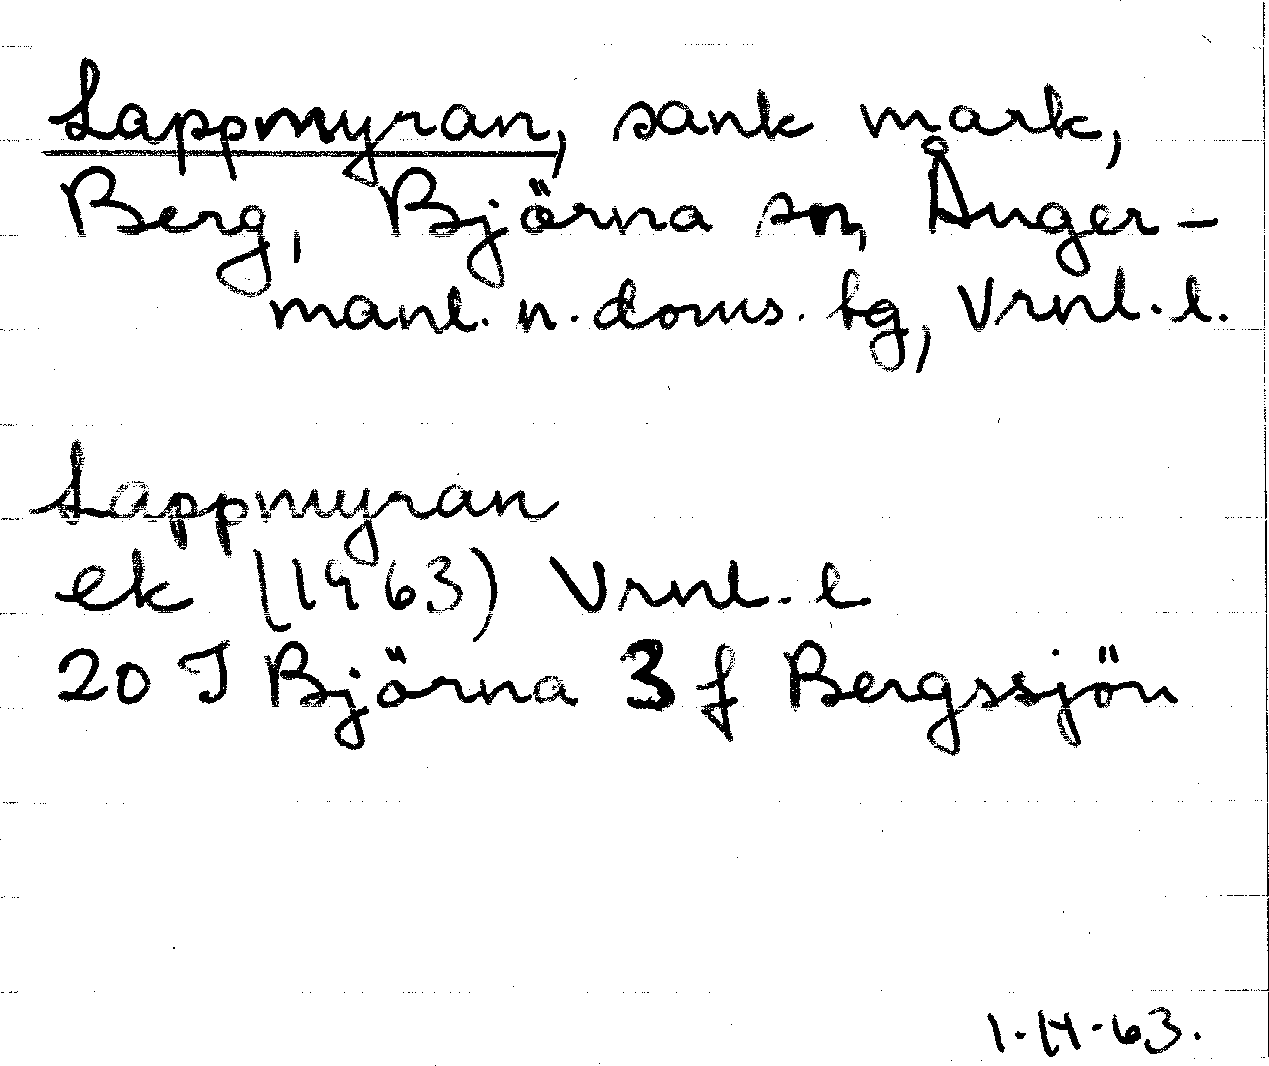 Lappmyran, sank mark,
Berg, Björna sn, Ånger-
manl. n. doms. hg, Vrnl. l.
Lappmyran
ek (1963) Vrnl. l
20 J Björna 3 f Bergssjön